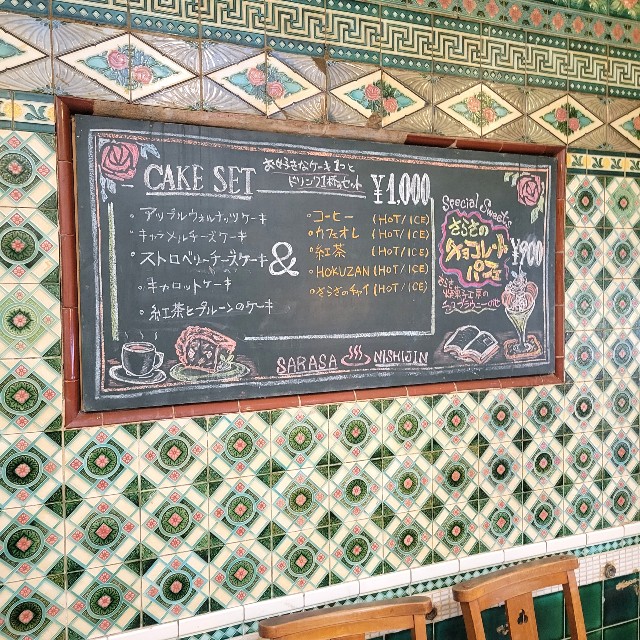 CAKE SET
お好きなケーキ1つと
ドリンク1杯のセット
¥1.000
・アップルウォルナッツケーキ
・キャラメルチーズケーキ
・ストロベリーチーズケーキ
・キャロットケーキ
・紅茶とプルーンのケーキ
&
・コーヒー (HOT/ICE)
・カフェオレ (HOT/ICE)
・紅茶 (HOT/ICE)
・HOKUZAN (HOT/ICE)
・さらさのチャイ (HOT/ICE)
Special Sweets
さらさの
チョコレート
パフェ
¥900
SARASA NISHIJIN